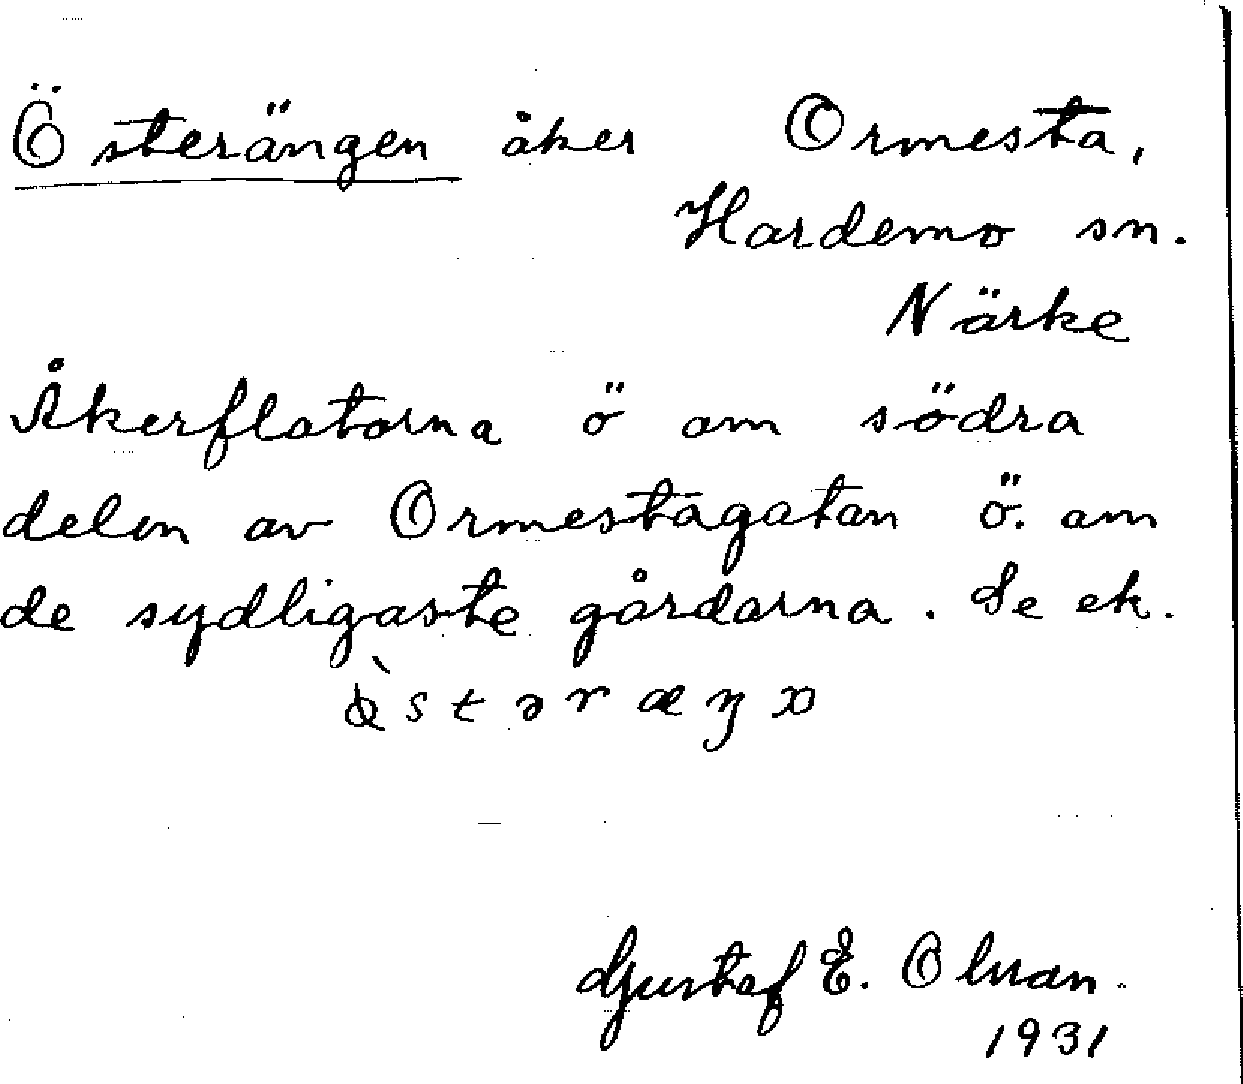 Österängen åker Ormesta,
Hardemo sn.
Närke
Åkerflatorna ö om södra
delen av Ormestagatan ö. om
de sydligaste gårdarna. Se ek.
Gustaf E. Olsson.
1931